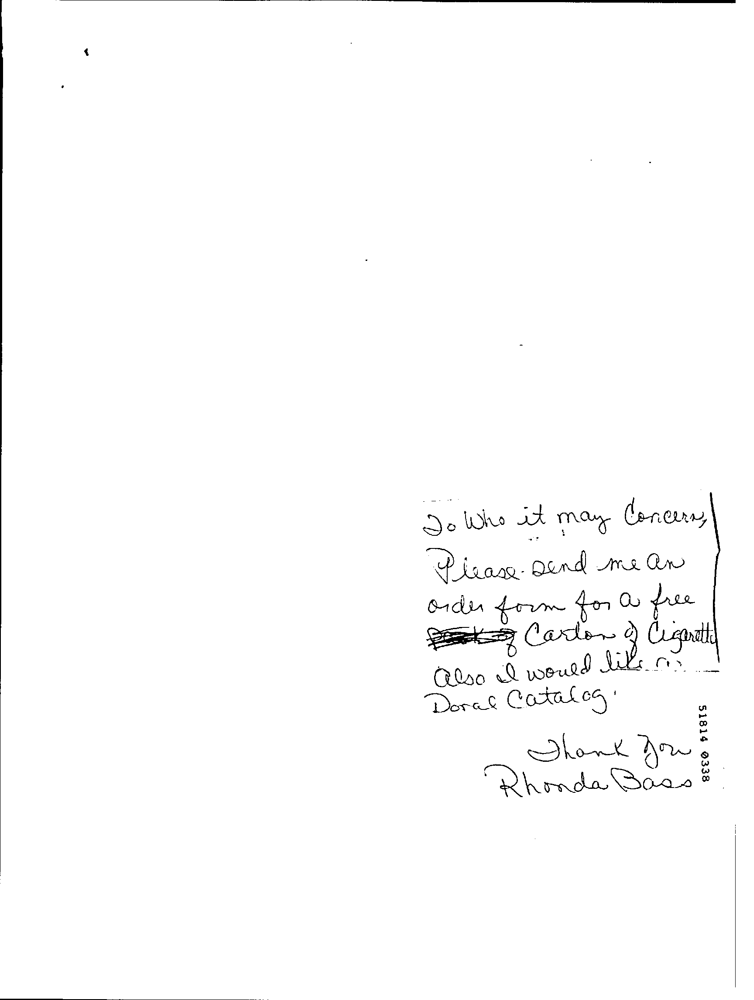 To Who it may Concern,
Please send me an
order form for a free
Carton of Cigarette
Also I would like
Doral Catalog.
Thank You
Rhonda Bass
51814 0338